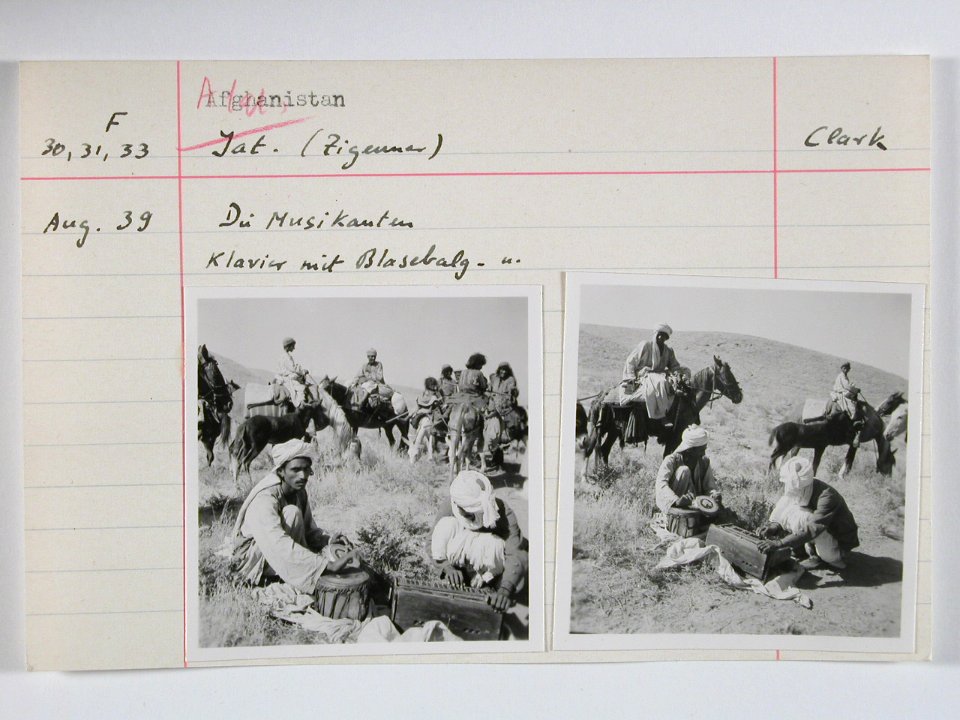 Afghanistan
F
30, 31, 33
Jat. (Zigeuner)
Clark
Aug. 39
Die Musikanten
Klavier mit Blasebalg - u.